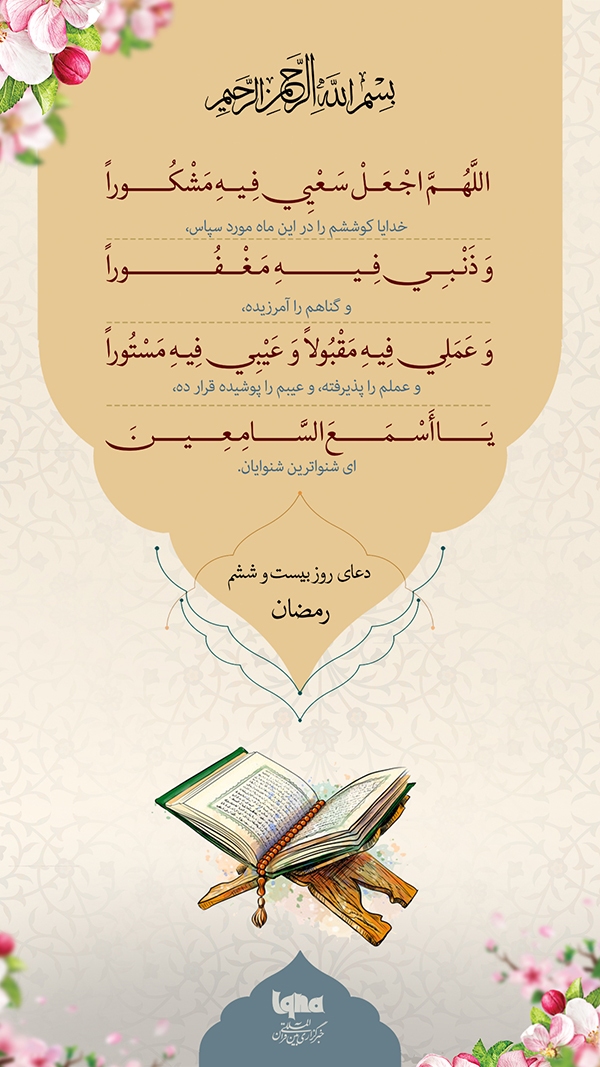 بِسْمِ اللَّهِ الرَّحْمنِ الرَّحِيمِ
اللَّهُمَّ اجْعَلْ سَعْيِي فِيهِ مَشْكُوراً
خدایا کوششم را در این ماه مورد سپاس،
وَ ذَنْبِي فِيهِ مَغْفُوراً
و گناهم را آمرزیده،
وَ عَمَلِي فِيهِ مَقْبُولاً وَ عَيْبِي فِيهِ مَسْتُوراً
و عملم را پذیرفته، و عیبم را پوشیده قرار ده،
يَا أَسْمَعَ السَّامِعِينَ
ای شنواترین شنوایان.
دعای روز بیست و ششم
رمضان
iqna
خبرگزاری بین‌المللی قرآن